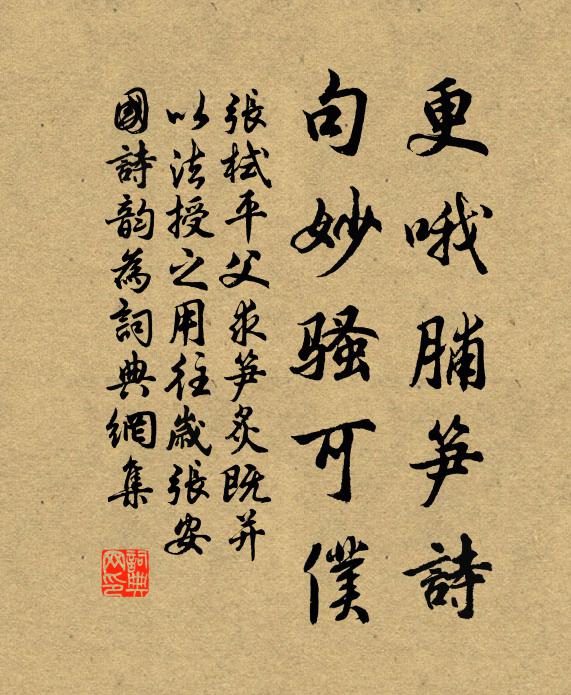 更哦脯笋詩
句妙騷可僕
張栻平父求笋炙既并
以法授之用往歲張安
國詩韵為詞典網集
詞典
网印